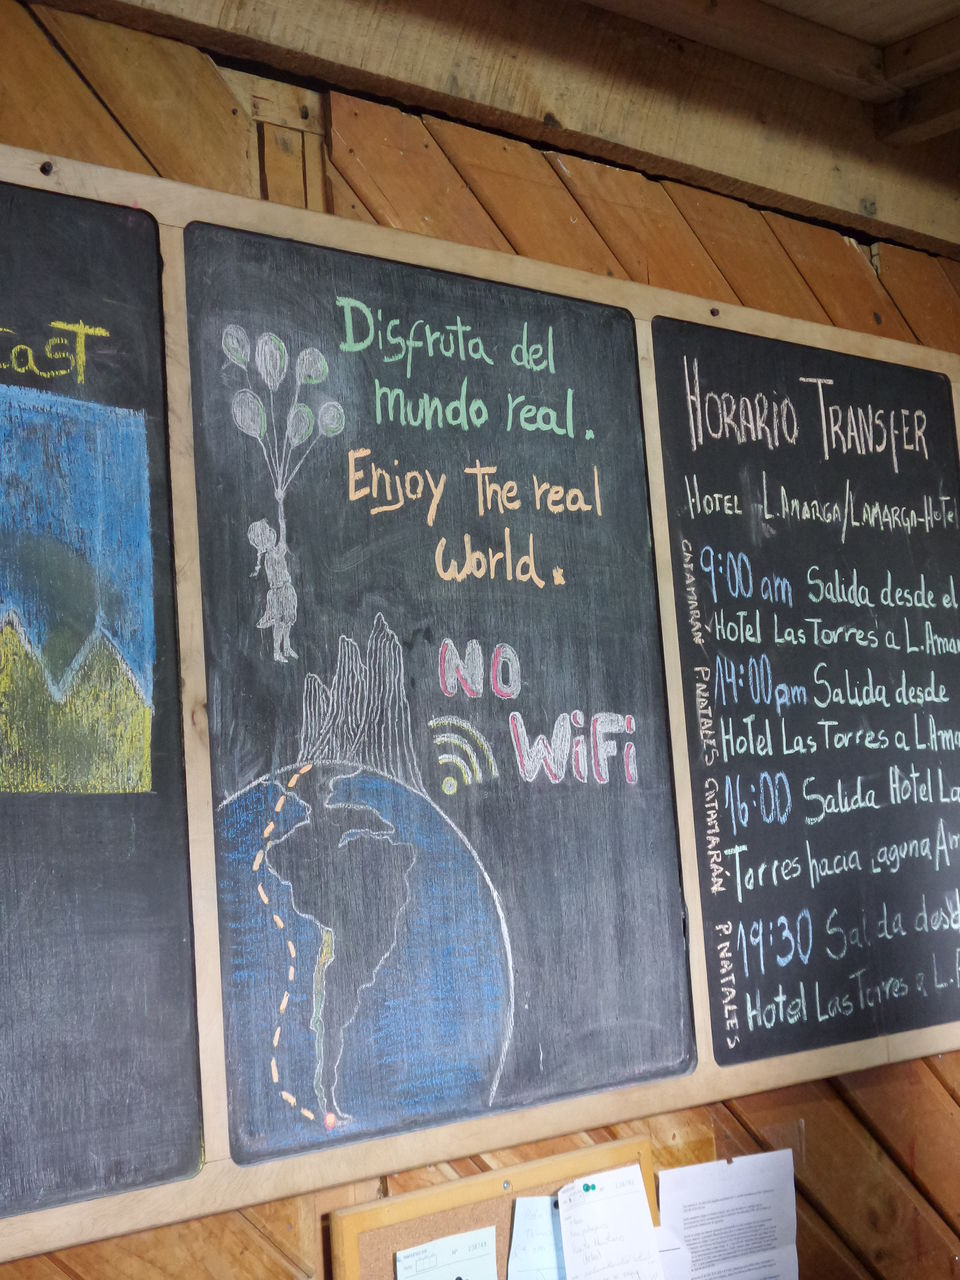 Disfruta del
mundo real.
Enjoy The real
World.
NO
WiFi
HORARIO TRANSFER
HOTEL L.AMARGA/L.AMARGA-HOTEL
9:00 am Salida desde el
Hotel Las Torres a L.Amar
14:00pm Salida desde
Hotel Las Torres a L.Ama
16:00 Salida Hotel La
Torres hacia laguna Am
19:30 Salida desde
Hotel Las Torres a L.A
CATAMARÁN P.NATALES CATAMARÁN P.NATALES